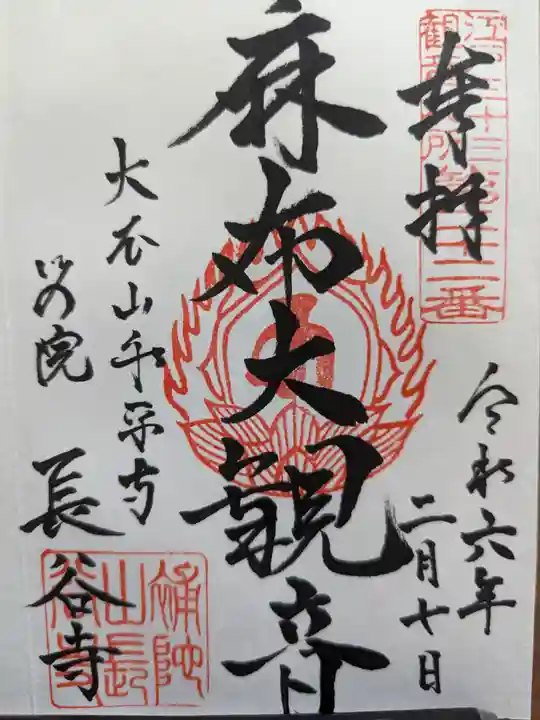 奉拝
江戸三十三
観音札所第二十二番
令和六年
二月七日
麻布大観音
大本山永平寺
別院
長谷寺
補陀
山長
谷寺